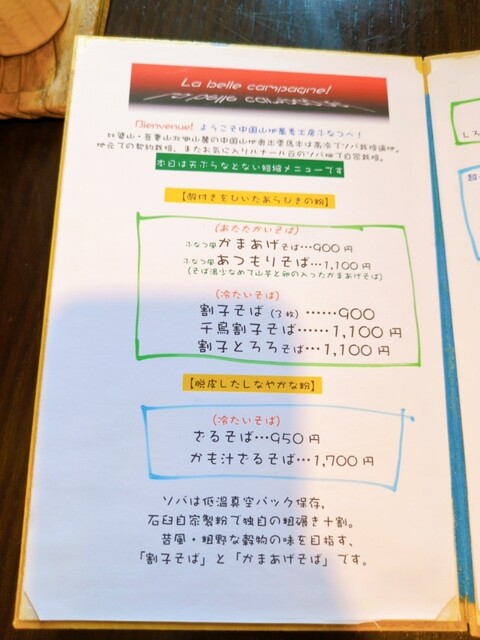 La belle campagne!
Bienvenue! ようこそ中国山地蕎麦工房ふなつへ!
比婆山・吾妻山比婀山麓の中国山地奥出雲馬木は高冷でソバ栽培適地。
地元での契約栽培、またお気に入りハナール百のソバ畑で自家栽培。
本日は天ぷらなどない短縮メニューです
【殻付きをひいたあらびきの粉】
(あたたかいそば)
ふなつ風 かまあげそば…900円
ふなつ風 あつもりそば…1,100円
(そば湯少なめで山芋と卵の入ったかまあげそば)
(冷たいそば)
割子そば(3枚)……900
千鳥割子そば……1,100円
割子とろろそば…1,100円
【脱皮したしなやかな粉】
(冷たいそば)
ざるそば…950円
かも汁ざるそば…1,700円
ソバは低温真空パック保存。
石臼自家製粉で独自の粗碾き十割。
昔風・粗野な穀物の味を目指す、
「割子そば」と「かまあげそば」です。